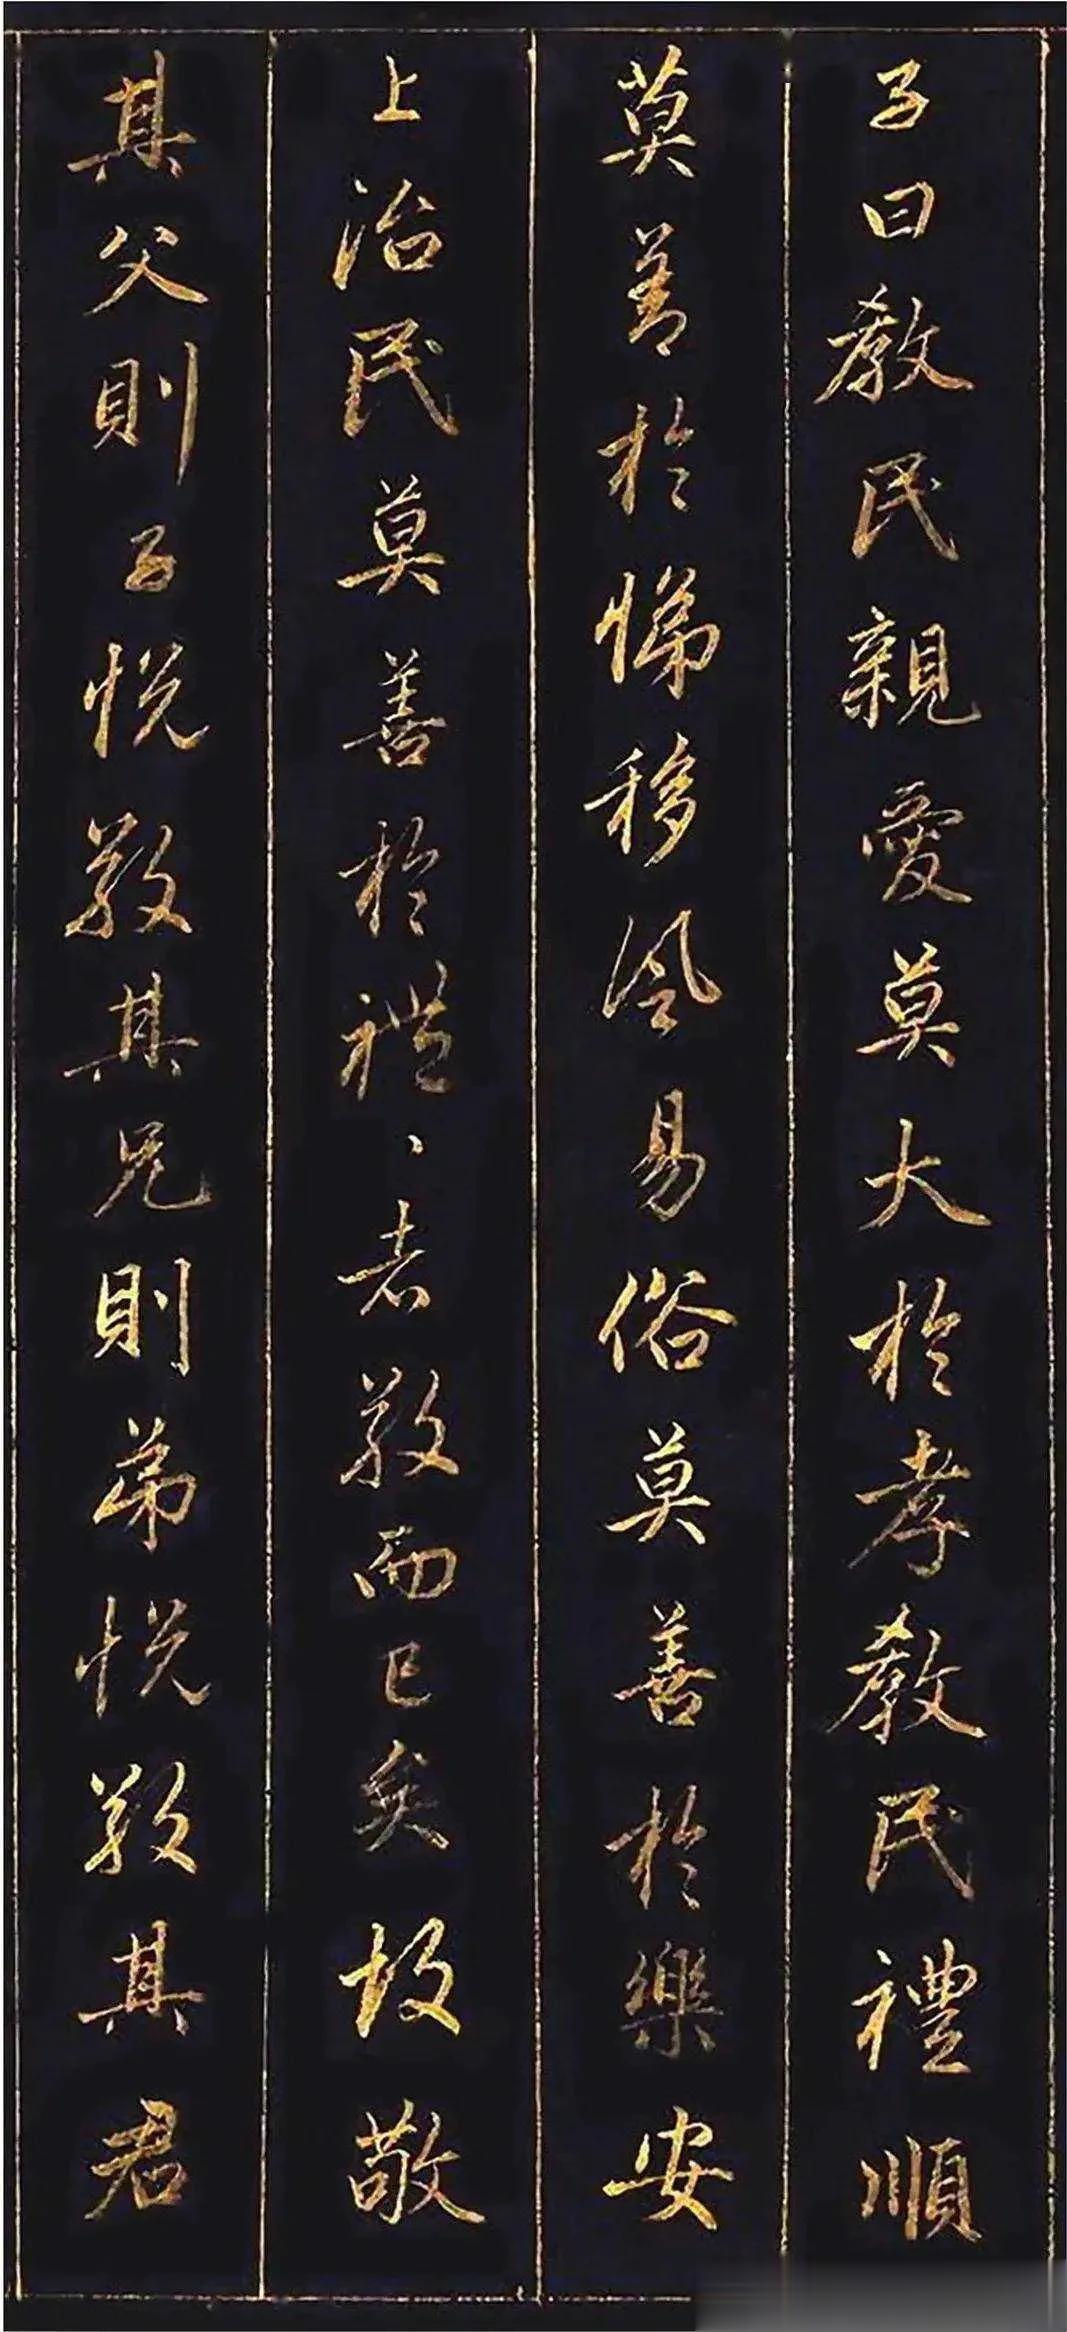 子曰教民親愛莫大於孝教民禮順
莫善於悌移風易俗莫善於樂安
上治民莫善於禮、者敬而已矣故敬
其父則子悅敬其兄則弟悅敬其君